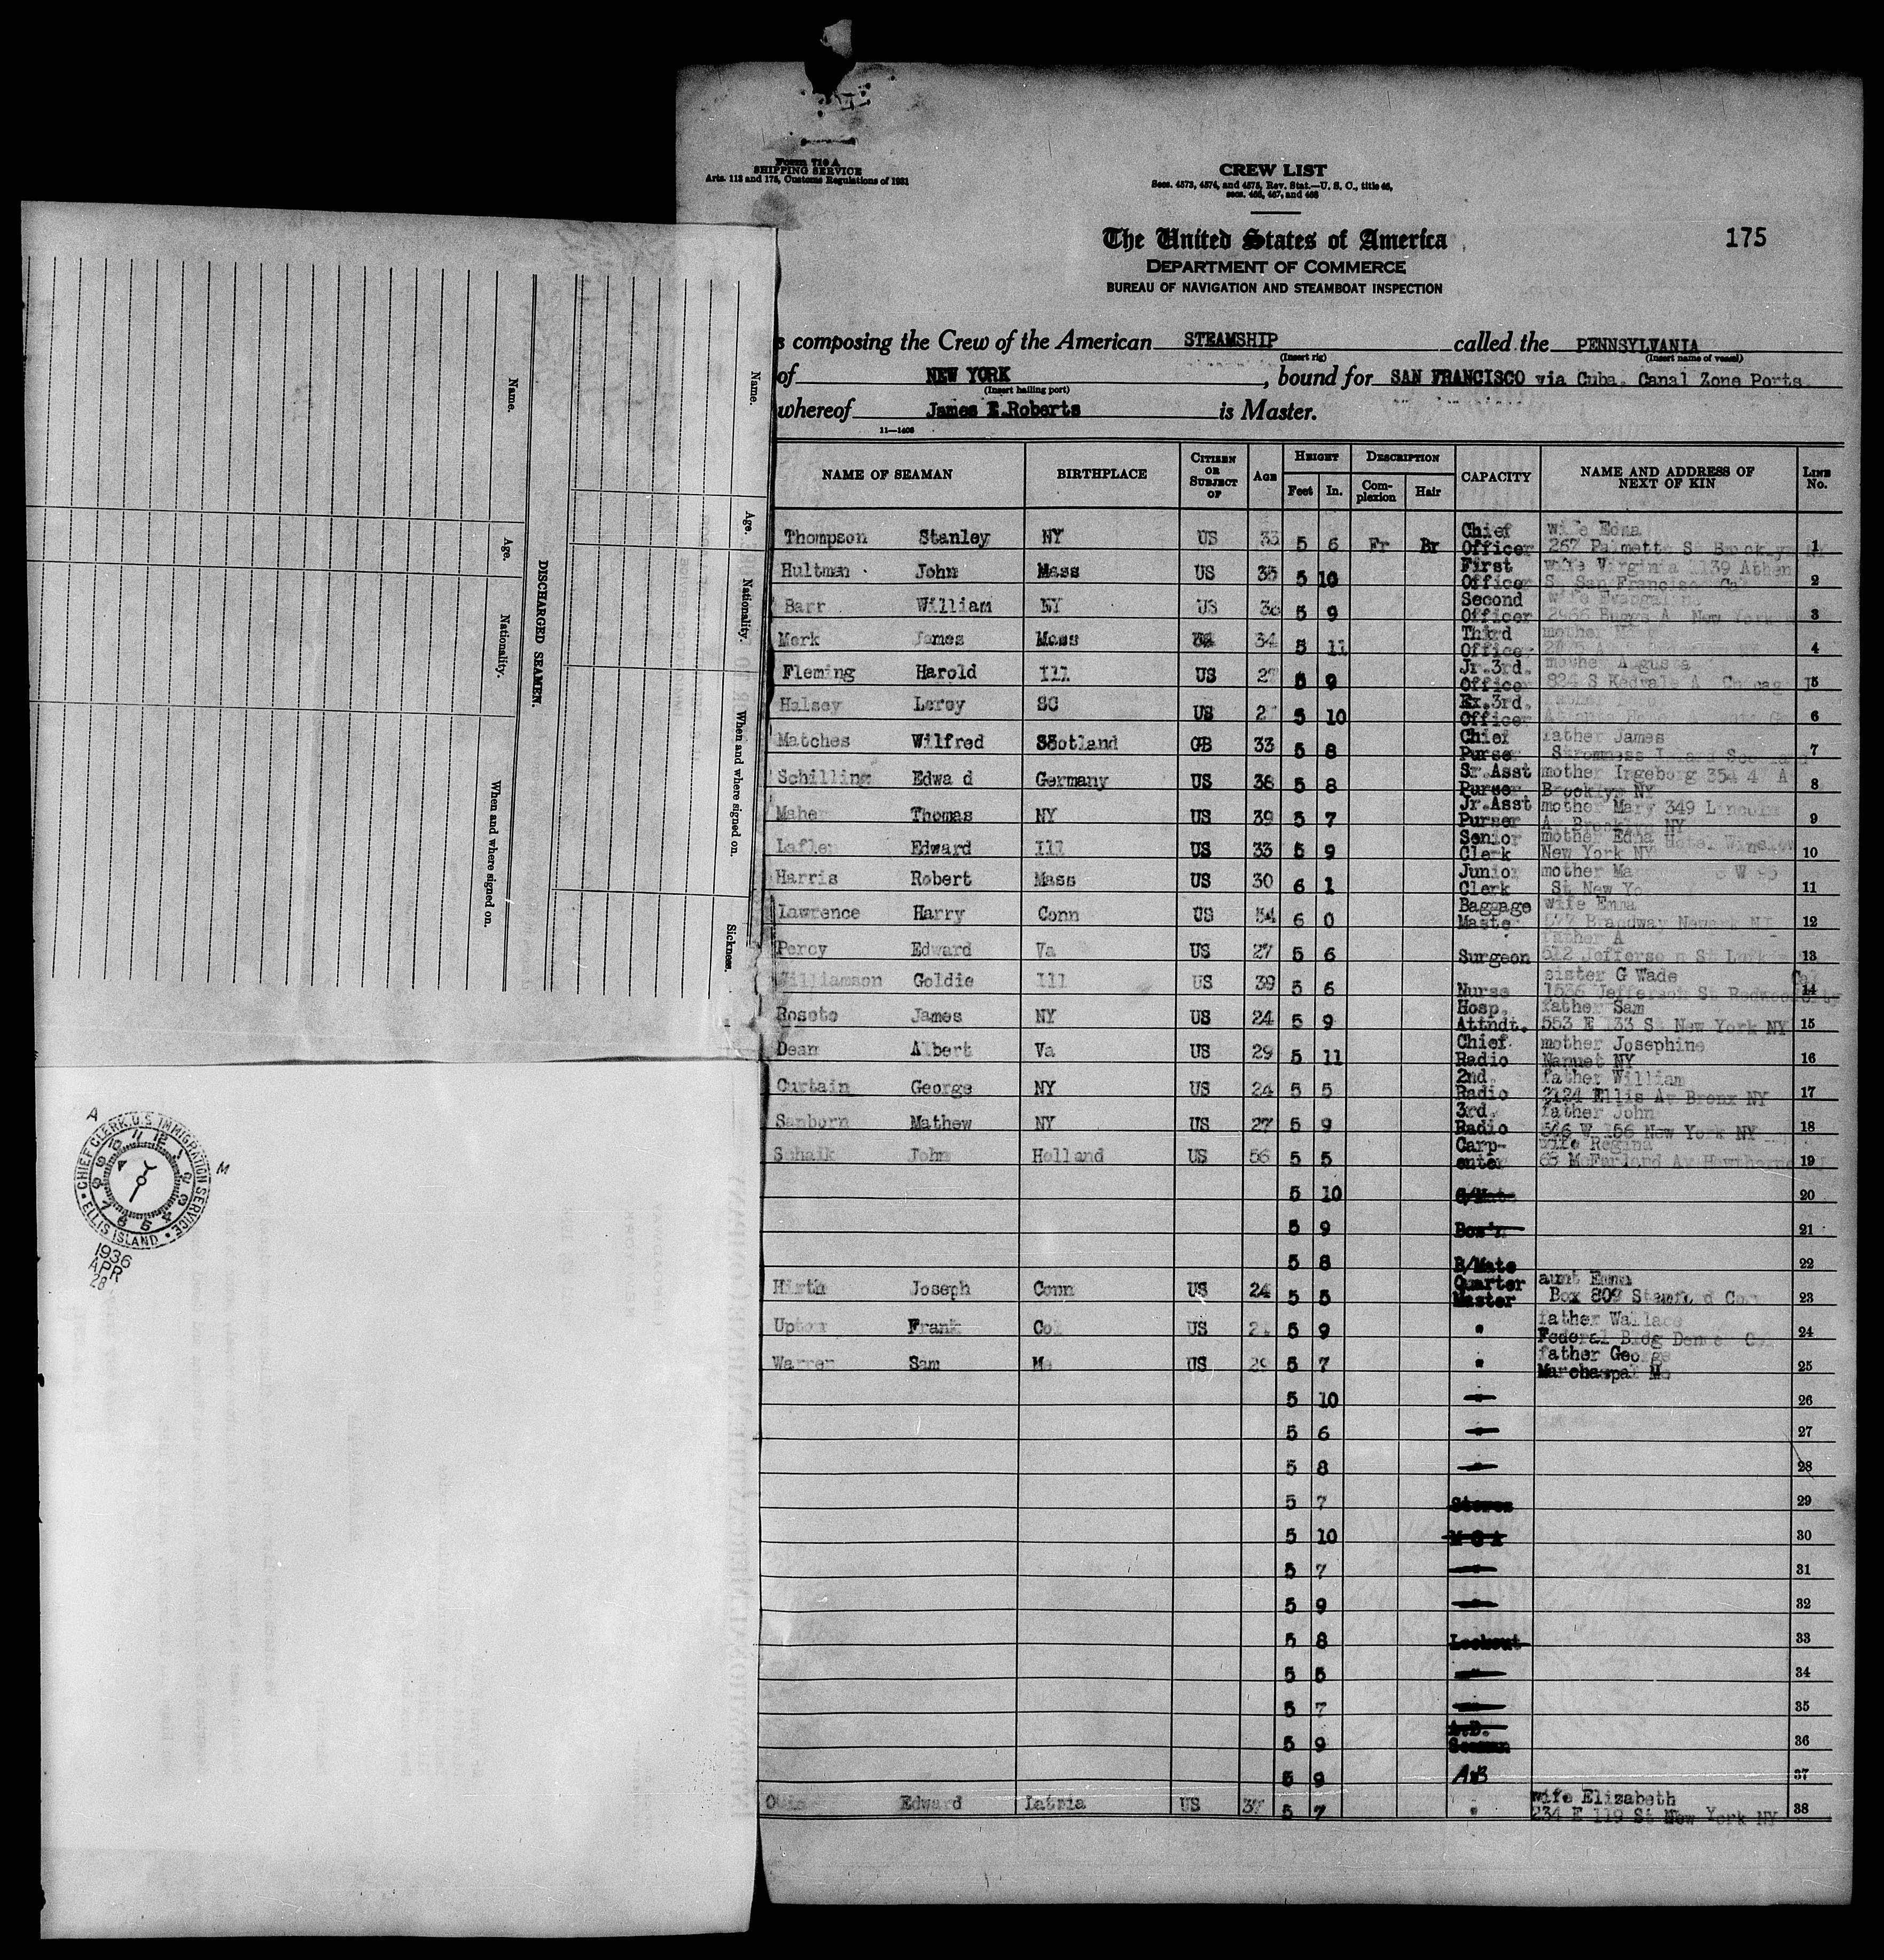 Form 710 A
SHIPPING SERVICE
Arts. 113 and 175, Customs Regulations of 1931
CREW LIST
Secs. 4573, 4574, and 4575, Rev. Stat.—U. S. C., title 46,
secs. 466, 467, and 468
The United States of America
175
DEPARTMENT OF COMMERCE
BUREAU OF NAVIGATION AND STEAMBOAT INSPECTION
s composing the Crew of the American STEAMSHIP called the PENNSYLVANIA
(Insert rig) (Insert name of vessel)
of NEW YORK, bound for SAN FRANCISCO via Cuba. Canal Zone Ports
(Insert hailing port)
whereof James E.Roberts is Master.
11—1408
NAME OF SEAMAN BIRTHPLACE CITIZEN OR SUBJECT OF AGE HEIGHT Feet In. DESCRIPTION Complexion Hair CAPACITY NAME AND ADDRESS OF NEXT OF KIN LINE No.
Thompson Stanley NY US 33 5 6 Fr Br Chief Officer wife Edna 267 Palmetto St Brooklyn NY 1
Hultman John Mass US 35 5 10 First Officer wife Virginia 1139 Athen S. San Francisco Cal 2
Barr William NY US 36 5 9 Second Officer wife 2966 Buggs A New York 3
Merk James Mass 34 5 11 Third Officer mother 4
Fleming Harold Ill US 5 9 Jr.3rd. Officer mother Augusta 824 S Kedvale A Chicago 5
Halsey Leroy SC US 5 10 Ex.3rd. Officer 6
Matches Wilfred Scotland GB 33 5 8 Chief Purser father James 7
Schilling Edwa d Germany US 38 5 8 Sr.Asst Purser mother Ingeborg 354 4 A Brooklyn NY 8
Maher Thomas NY US 39 5 7 Jr.Asst Purser mother Mary 349 Lincoln Av Brooklyn NY 9
Lafler Edward Ill US 33 5 9 Senior Clerk mother Edna Hotel Winslow New York NY 10
Harris Robert Mass US 30 6 1 Junior Clerk mother Ma W 95 St New Yo 11
Lawrence Harry Conn US 54 6 0 Baggage Maste wife Emma 577 Broadway Newark NJ 12
Percy Edward Va US 27 5 6 Surgeon father A 512 Jefferso n St 13
Williamson Goldie Ill US 39 5 6 Nurse sister G Wade 1536 Jefferson St Redwood City Cal 14
Roseto James NY US 24 5 9 Hosp. Attndt. father Sam 553 E 133 St New York NY 15
Dean Albert Va US 29 5 11 Chief Radio mother Josephine Nanuet NY 16
Curtain George NY US 24 5 5 2nd. Radio father William 2124 Ellis Av Bronx NY 17
Sanborn Mathew NY US 27 5 9 3rd. Radio father John 546 W 156 New York NY 18
Schaik John Holland US 56 5 5 Carpenter wife Regina 63 McFarland Av Hawthorne 19
5 10 C/Mate 20
5 9 Bos'n 21
5 8 B/Mate 22
Hirth Joseph Conn US 24 5 5 Quarter Master aunt Emma Box 809 Stamford Con 23
Upton Frank Col US 5 9 " father Wallace Federal Bldg 24
Warren Sam Me US 29 5 7 " father George 25
5 10 26
5 6 27
5 8 28
5 7 Stores 29
5 10 30
5 7 31
5 9 32
5 8 Lookout 33
5 5 34
5 7 35
5 9 A.B. Seaman 36
5 9 AB 37
Edward Latvia US 37 5 7 " wife Elizabeth 234 E 119 St New York NY 38
Name. Age. Nationality. When and where signed on. Sickness.
DISCHARGED SEAMEN.
Name. Age. Nationality. When and where signed on.
A M
CHIEF CLERK, U.S. IMMIGRATION SERVICE
ELLIS ISLAND
12 1 2 3 4 5 6 7 8 9 10 11
1936
APR
28